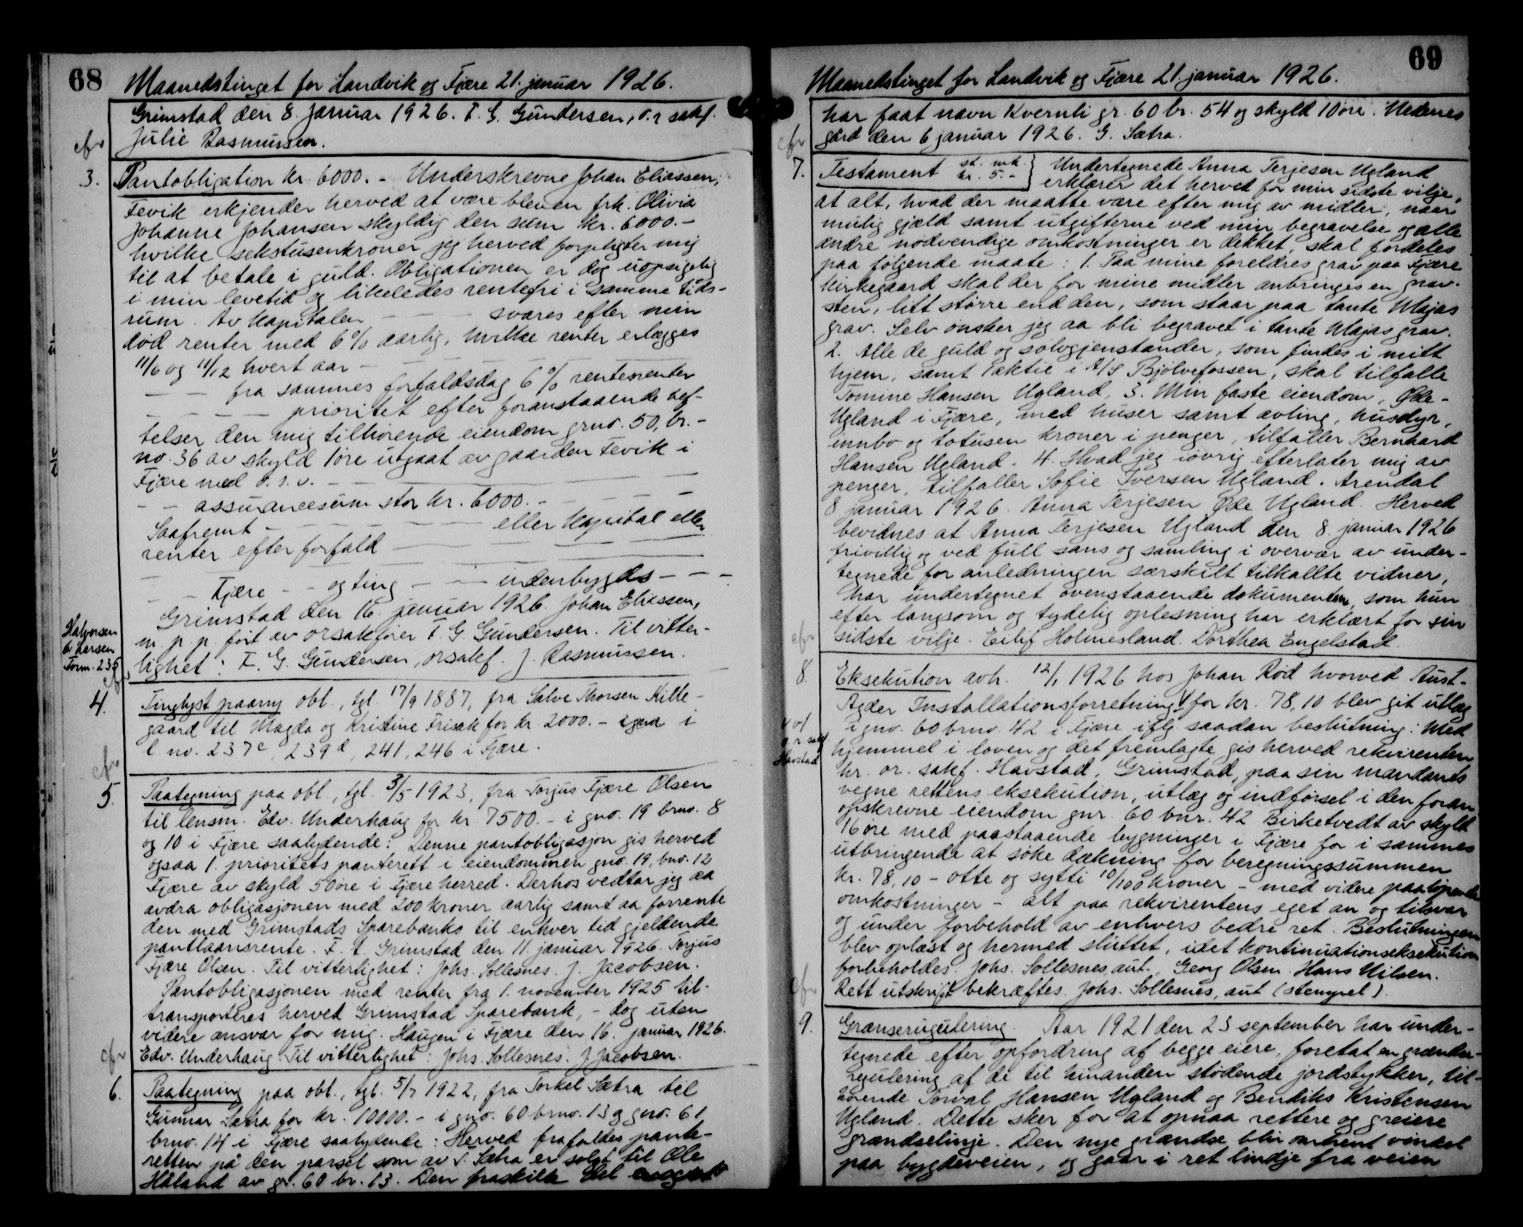 68
Maanedstinget for Landvik og Fjære 21. januar 1926.
Grimstad den 8. januar 1926. F. G. Gundersen, o.r sakf.
Julie Rasmussen.
cfr
3.
Pantobligation kr. 6000.- Underskrevne Johan Eliassen,
Fevik erkjender herved at være bleven frk. Olivia
Johanne Johansen skyldig den sum kr. 6000.-
hvilke sekstusenkroner jeg herved forpligter mig
til at betale i guld. Obligationen er dog uopsigelig
i min levetid og likeledes rentefri i samme tids-
rum. Av kapitalen - - - svares efter min
død renter med 6% aarlig, hvilke renter erlægges
11/6 og 11/12 hvert aar -
- - fra sammes forfaldsdag 6% rentesrenter
- - - - prioritet efter foranstaaende hef-
telser den mig tilhørende eiendom gno. 50, br.-
no. 36 av skyld 1 øre utgaat av gaarden Fevik i
Fjære med o.s.v. -
- - assurancesum stor kr. 6000.-
Saafremt - - - - eller kapital eller
renter efter forfald
- - Fjære - - og ting - - indenbygds - - -
Grimstad den 16. januar 1926. Johan Eliassen,
m. p. p. ført av orsakfører F. G. Gundersen. Til vitter-
lighet: F. G. Gundersen, orsakf. J. Rasmussen.
Halvorsen
& Larsen
Form. 235
cfr
4.
Tinglyst paany obl., tgl. 17/9 1887, fra Salve Thorsen Kille-
gaard til Magda og Kristine Frisak for kr. 2000.- i
l no. 237c, 239d, 241, 246 i Fjære.
cfr
5.
Paategning paa obl., tgl. 3/5 1923, fra Torjus Fjære Olsen
til lensm. Edv. Underhaug for kr. 7500.- i gno. 19 brno. 8
og 10 i Fjære saalydende: Denne pantobligasjon gis herved
ogsaa 1. prioritets panterett i eiendommen gno. 19, bno. 12
Fjære av skyld 50 øre i Fjære herred. Derhos vedtar jeg aa
avdra obligasjonen med 200 kroner aarlig samt aa forrente
den med Grimstads Sparebanks til enhver tid gjeldende
pantlaansrente. F. t. Grimstad den 11. januar 1926. Torjus
Fjære Olsen. Til vitterlighet: Johs. Sollesnes. J. Jacobsen.
Pantobligasjonen med renter fra 1. november 1925 til-
transporteres herved Grimstad Sparebank, - dog uten
videre ansvar for mig. Haugen i Fjære den 16. januar 1926.
Edv. Underhaug. Til vitterlighet: Johs. Sollesnes. J. Jacobsen.
cfr
6.
Paategning paa obl., tgl. 5/7 1922, fra Torkel Sætra til
Gunnar Sætra for kr. 10000.- i gno. 60 brno. 13 og gno. 61
brno. 14 i Fjære saalydende: Herved frafaldes pante-
retten på den parsel som av T. Sætra er solgt til Ole
Håland av gr. 60 br. 13. Den fraskilte del
69
Maanedstinget for Landvik og Fjære 21. januar 1926.
har faat navn Kvernli gr. 60 br. 54 og skyld 10 øre. Nedenes
gård den 6 januar 1926. G. Sætra.
cfr
7.
Testament st. mk. kr. 5.- } Undertegnede Anna Terjesen Ugland
erklærer det herved for min sidste vilje,
at alt, hvad der maatte være efter mig av midler, naar
mulig gjæld samt utgifterne ved min begravelse og alle
andre nødvendige omkostninger er dekket, skal fordeles
paa følgende maate: 1. Paa mine foreldres grav paa Fjære
kirkegaard skal der for mine midler anbringes en grav-
sten, litt større end den, som staar paa tante Majas
grav. Selv ønsker jeg aa bli begravet i tante Majas grav.
2. Alle de guld og sølvgjenstander, som findes i mitt
hjem, samt 1 aktie i A/S Bjølvefossen, skal tilfalle
Tomine Hansen Ugland, 3. Min faste eiendom, Øde-
Ugland i Fjære, med huser samt avling, husdyr,
innbo og totusen kroner i penger, tilfaller Bernhard
Hansen Ugland. 4. Hvad jeg iøvrig efterlater mig av
penger, tilfaller Sofie Iversen Ugland. Arendal
8 januar 1926. Anna Terjesen Øde Ugland. Herved
bevidnes at Anna Terjesen Ugland den 8. januar 1926
frivillig og ved full sans og samling i overvær av under-
tegnede for anledningen særskilt tilkallte vidner,
har undertegnet ovenstaaende dokument, som hun
efter langsom og tydelig oplesning har erklært for sin
sidste vilje. Eilif Holmesland Dorthea Engelstad.
cfr
8.
Eksekution avh. 12/1 1926 hos Johan Rød hvorved Aust-
Agder Installationsforretning for kr. 78,10 blev git utlæg
i gno. 60 brno. 42 i Fjære iflg saadan beslutning: Med
hjemmel i loven og det fremlagte gis herved rekvirenten
hr. or. sakf. Havstad, Grimstad, paa sin mandants
vegne rettens eksekution, utlæg og indførsel i den foran
opskrevne eiendom gnr. 60 bnr. 42 Birketvedt av skyld
16 øre med paastaaende bygninger i Fjære for i sammes
utbringende at søke dækning for beregningssummen
kr. 78,10 - otte og sytti 10/100 kroner - med videre paaløpende
omkostninger - alt paa rekvirentens eget an og tilsvar
og under forbehold av enhvers bedre ret. Beslutningen
blev oplæst og hermed sluttet, idet kontinuationseksekution
forbeholdes. Johs. Sollesnes aut., Georg Olsen, Hans Nilsen.
Rett utskrift bekræftes. Johs. Sollesnes, aut (stempel).
o.r sakf
Havstad
cfr
9.
Grænseregulering. Aar 1921 den 23 september har under-
tegnede efter opfordring af begge eiere, foretat en grændse-
regulering af de til hinanden stødende jordstykker, til-
hørende Torval Hansen Ugland og Bendiks Kristensen
Ugland. Dette sker for at opnaa rettere og greiere
grændselinje. Den nye grændse blir omtrent vinkel
paa bygdeveien, og gaar i ret lindje fra veien